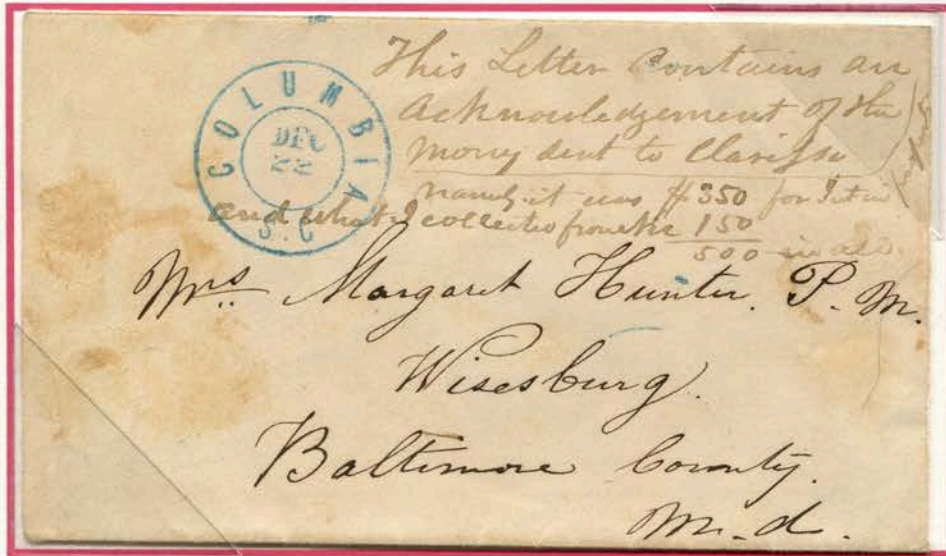 COLUMBIA
DEC
22
S.C
This Letter Contains an
Acknowledgement of the
money sent to Clarissa
namely it was $350 for
and what I collected from 150
500 in all.
Mrs. Margaret Hunter. P. M.
Wisesburg.
Baltimore County.
M.d.